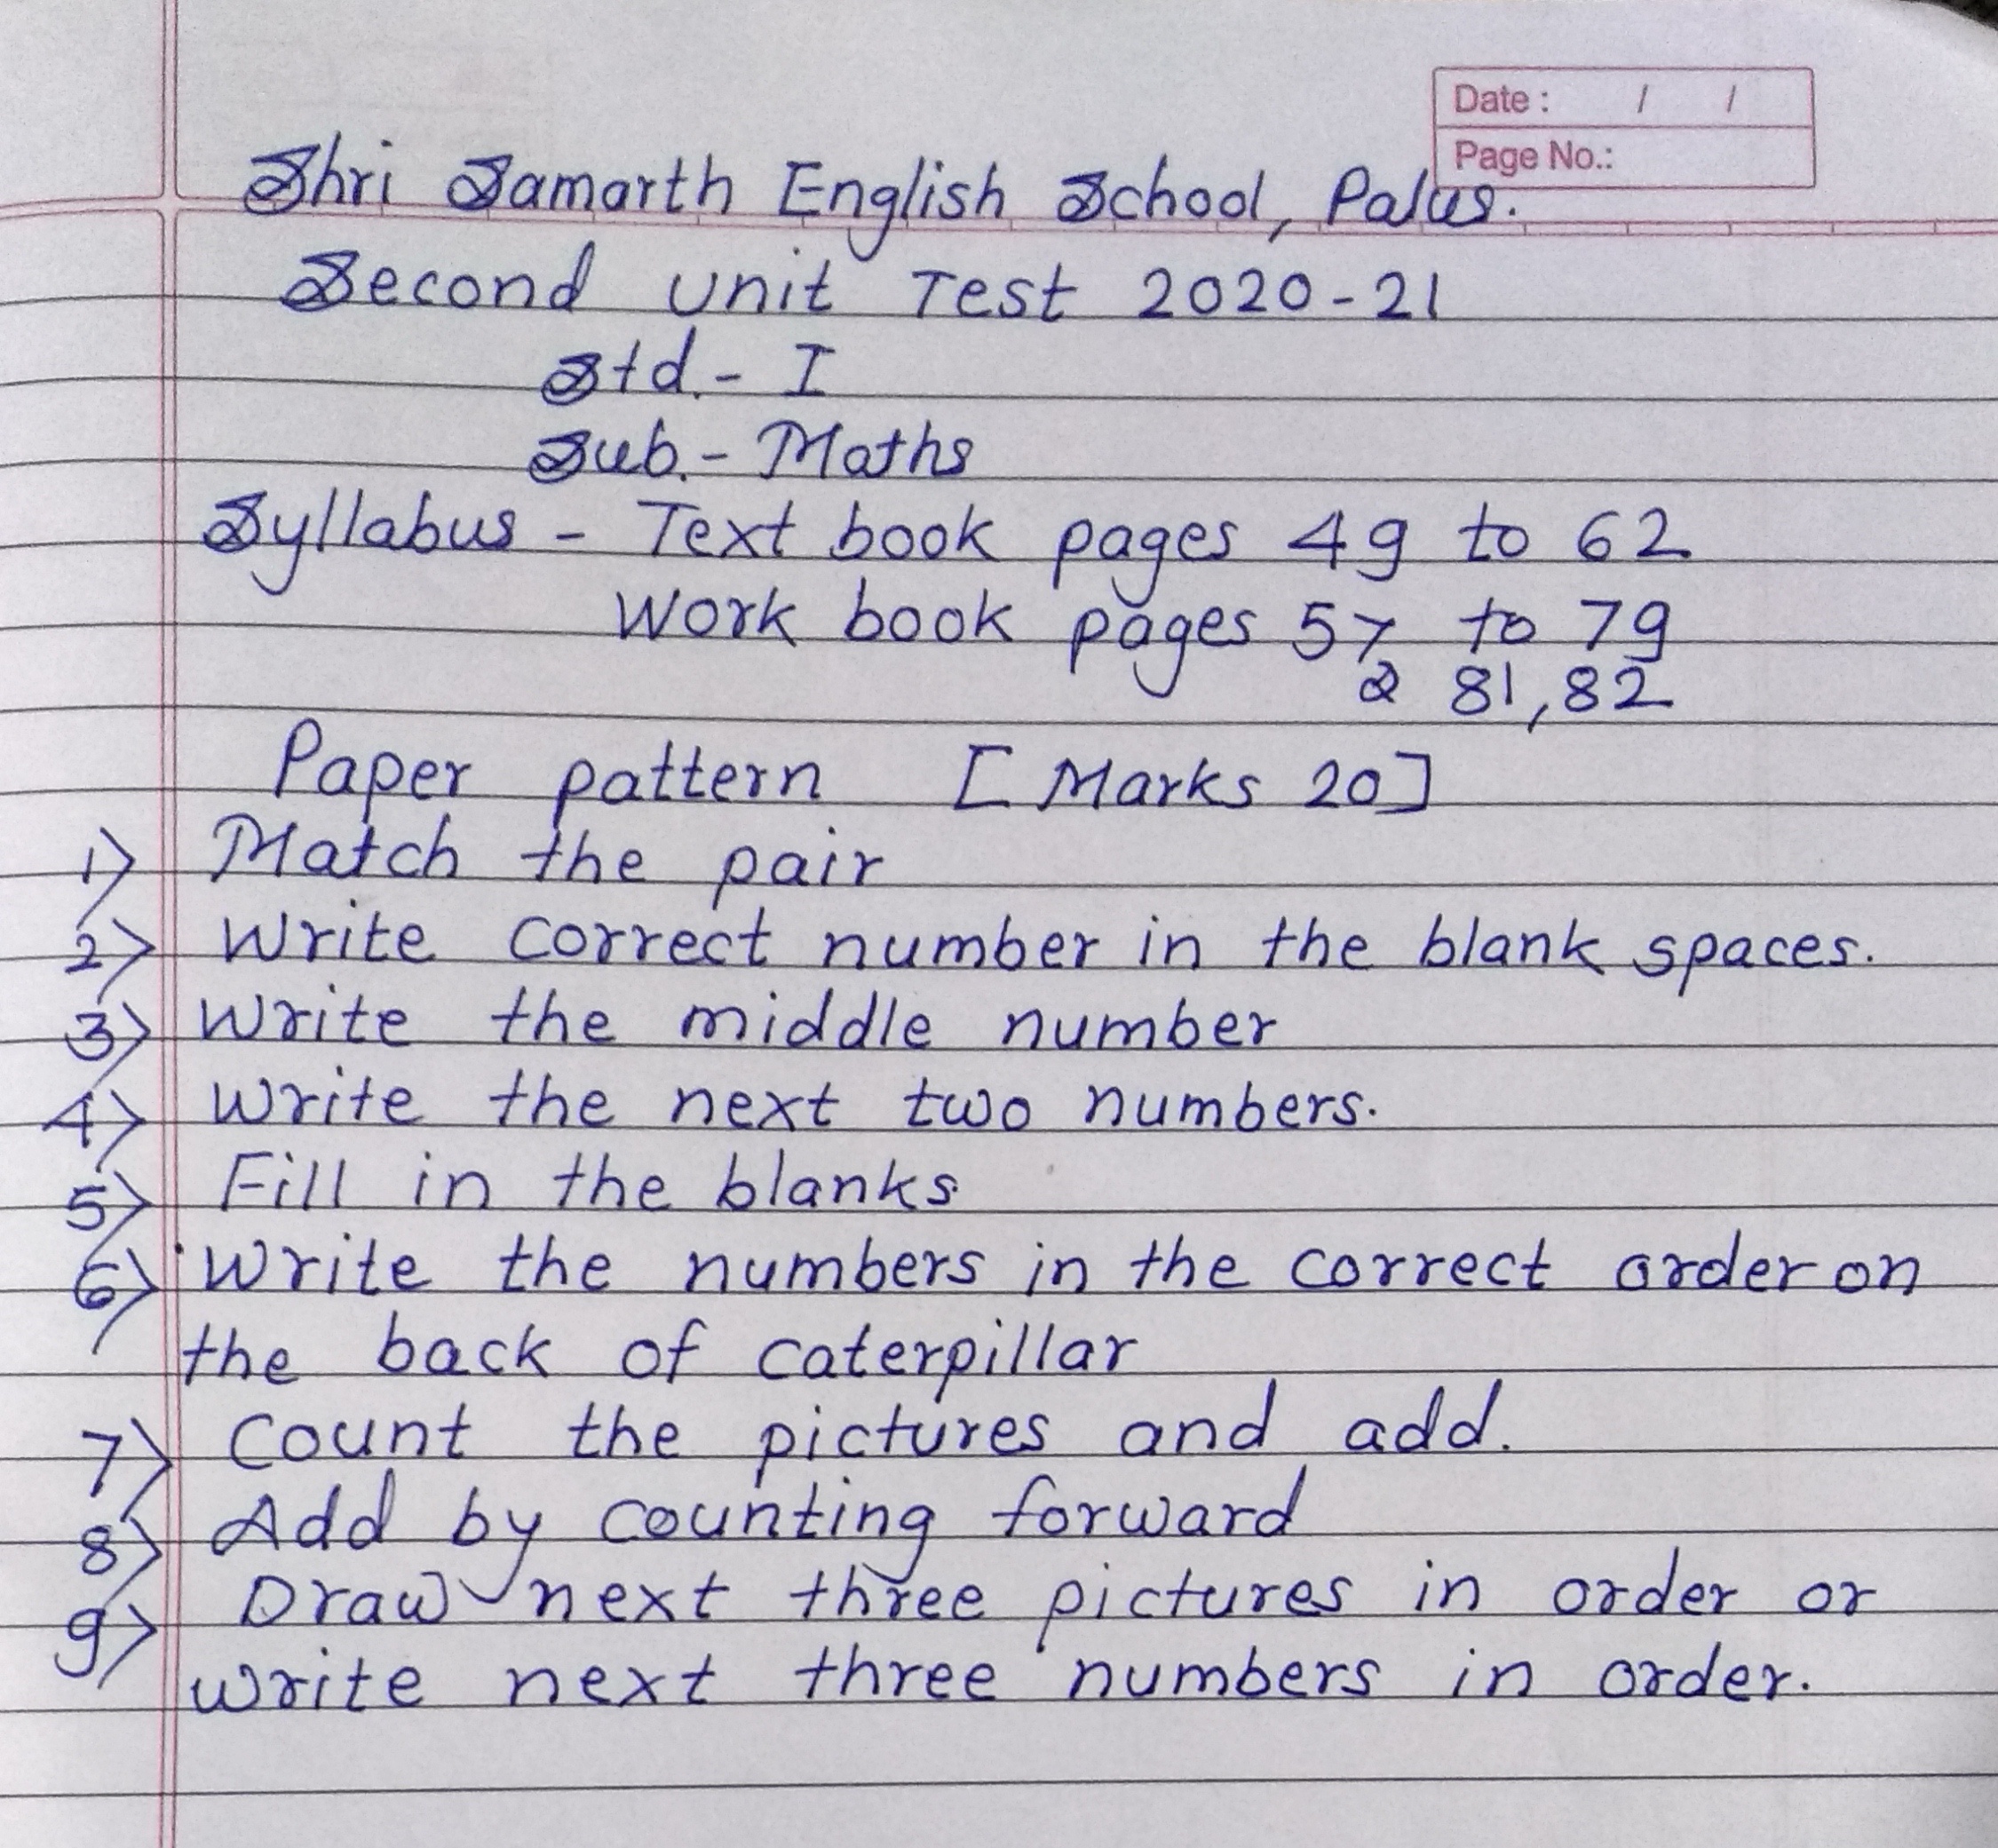 Date : / /
Page No.:
Shri Samarth English School, Palus.
Second Unit Test 2020-21
Std.- I
Sub.- Maths
Syllabus - Text book pages 49 to 62
Work book pages 57 to 79
& 81,82
Paper pattern [Marks 20]
1) Match the pair
2) Write correct number in the blank spaces.
3) Write the middle number
4) Write the next two numbers.
5) Fill in the blanks
6) Write the numbers in the correct order on
the back of caterpillar
7) Count the pictures and add.
8) Add by counting forward
9) Draw next three pictures in order or
write next three numbers in order.